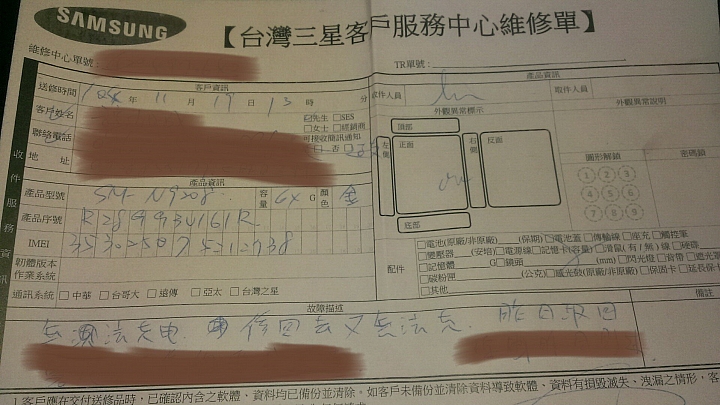 SAMSUNG
【台灣三星客戶服務中心維修單】
維修中心單號
TR單號:
客戶資訊
產品資訊
送修時間 104 年 11 月 19 日 13 時 分
收件人員
取件人員
客戶姓名
先生 SES
女士 經銷商
外觀異常標示
外觀異常說明
聯絡電話
可接收簡訊通知
否
地 址
頂部
左側
正面
右側
反面
底部
圖形解鎖
密碼鎖
1 2 3
4 5 6
7 8 9
收件服務資訊
產品資訊
產品型號 SM-N9208 容量 G 顏色 金
產品序號
IMEI
韌體版本
作業系統
通訊系統 中華 台哥大 遠傳 亞太 台灣之星
配件
電池(原廠/非原廠) (保期) 電池蓋 傳輸線 座充 觸控筆
變壓器 (安培) 電源線 記憶卡(容量) 滑鼠(有/無)線
記憶體 G 鏡頭 (mm) 閃光燈 背帶 遮光罩
碳粉匣 (公克) 感光鼓(原廠/非原廠) 保固卡 延長保
其他
故障描述
備註
無法充電 修回去又無法充 昨日取回
1.客戶應在交付送修品時,已確認內含之軟體、資料均已備份並清除。如客戶未備份並清除資料導致軟體、資料有損毀滅失、洩漏之情形,客